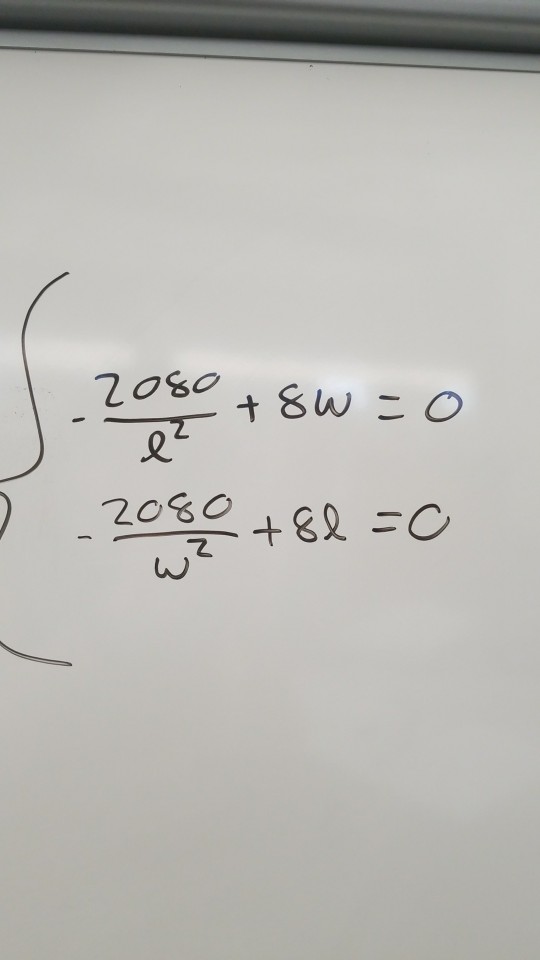 -2080/l² + 8w = 0
-2080/w² + 8l = 0